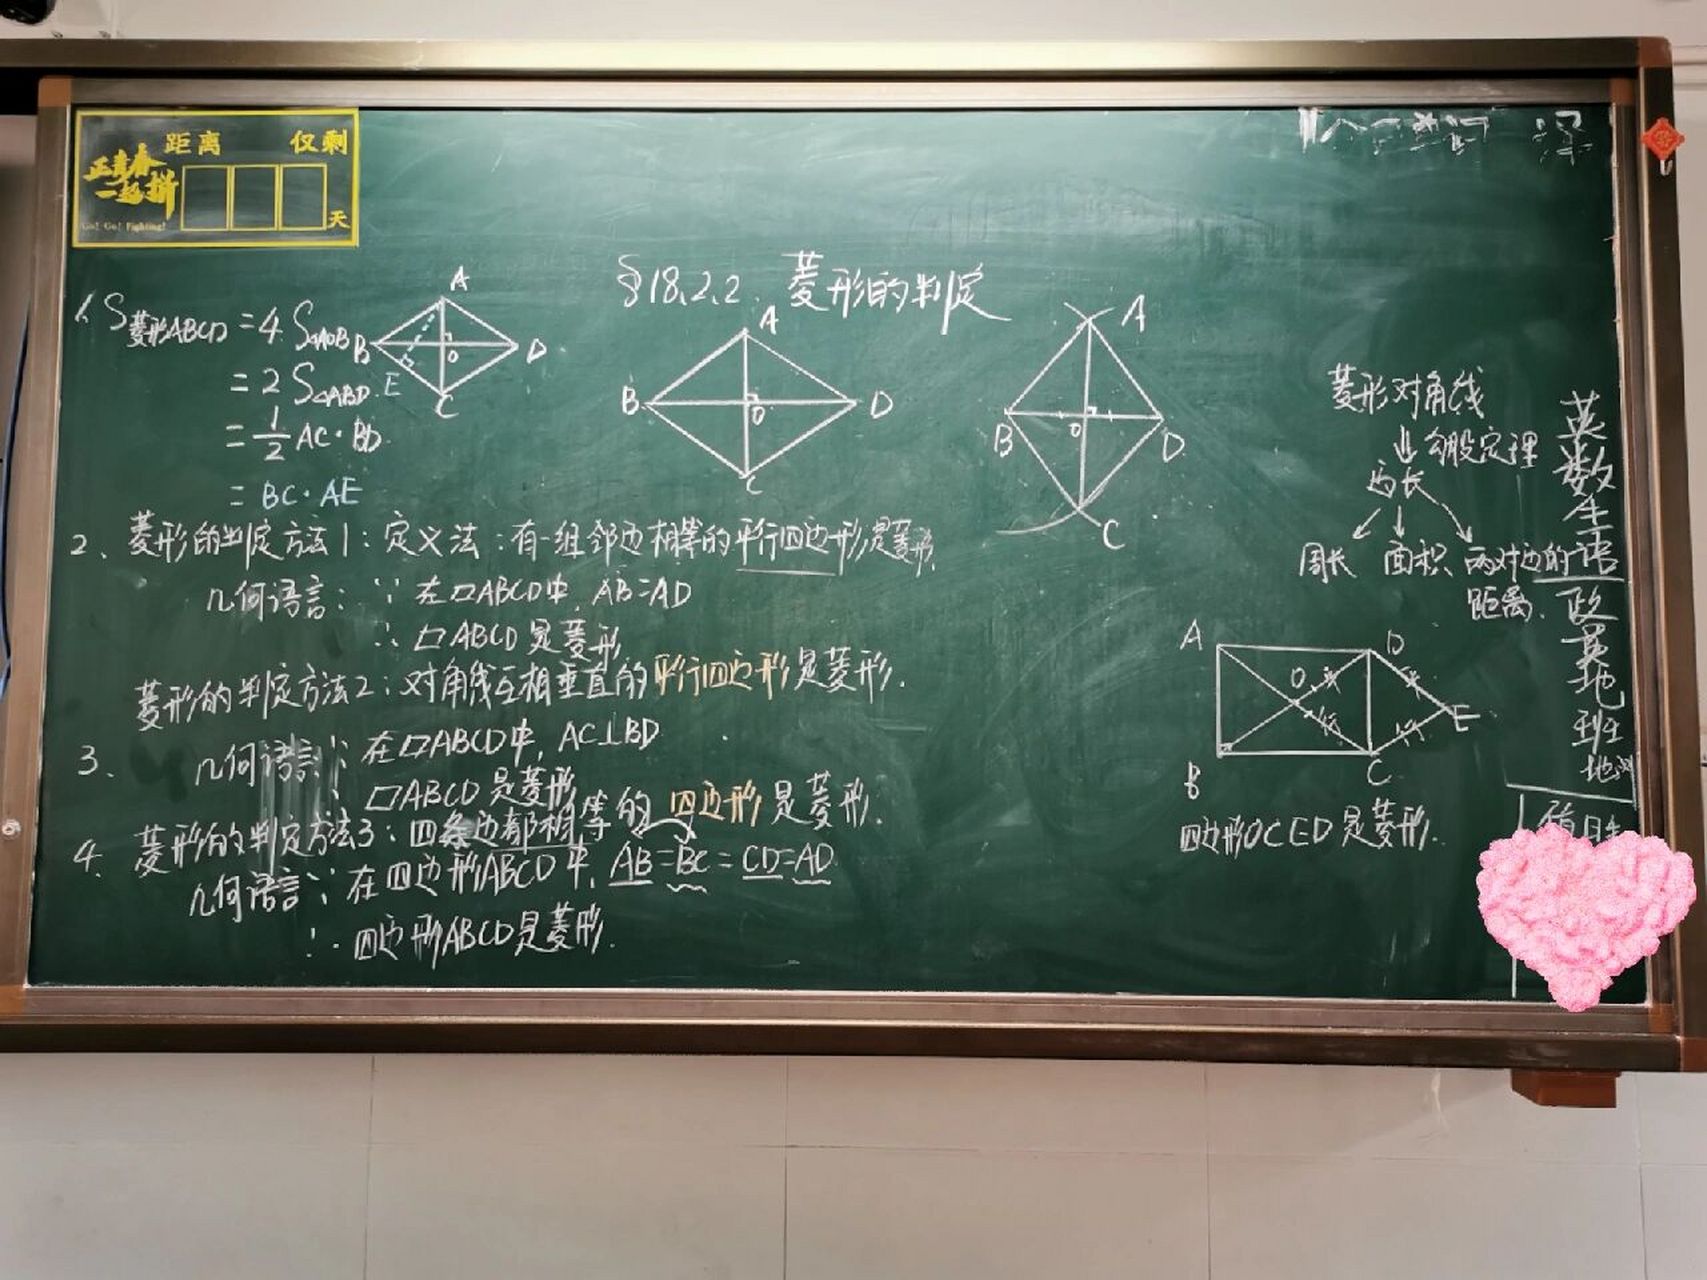 距离 仅剩
正青春
一起拼
Go! Go! Fighting!
天
§18.2.2 菱形的判定
1. S菱形ABCD = 4 S△AOB
= 2 S△ABD
= 1/2 AC·BD
= BC·AE
A
B
O
D
E
C
A
B
O
D
C
A
B
O
D
C
2. 菱形的判定方法1：定义法：有一组邻边相等的平行四边形是菱形.
几何语言：∵在▱ABCD中, AB=AD
∴▱ABCD是菱形
菱形的判定方法2：对角线互相垂直的平行四边形是菱形.
3. 几何语言：∵在▱ABCD中, AC⊥BD
▱ABCD是菱形
4. 菱形的判定方法3：四条边都相等的四边形是菱形.
几何语言∵在四边形ABCD中, AB=BC=CD=AD
∴四边形ABCD是菱形.
菱形对角线
勾股定理
边长
周长 面积 两对边的
距离.
A
D
O
E
B
C
四边形OCED是菱形.
英
数
生
语
政
英
地
班